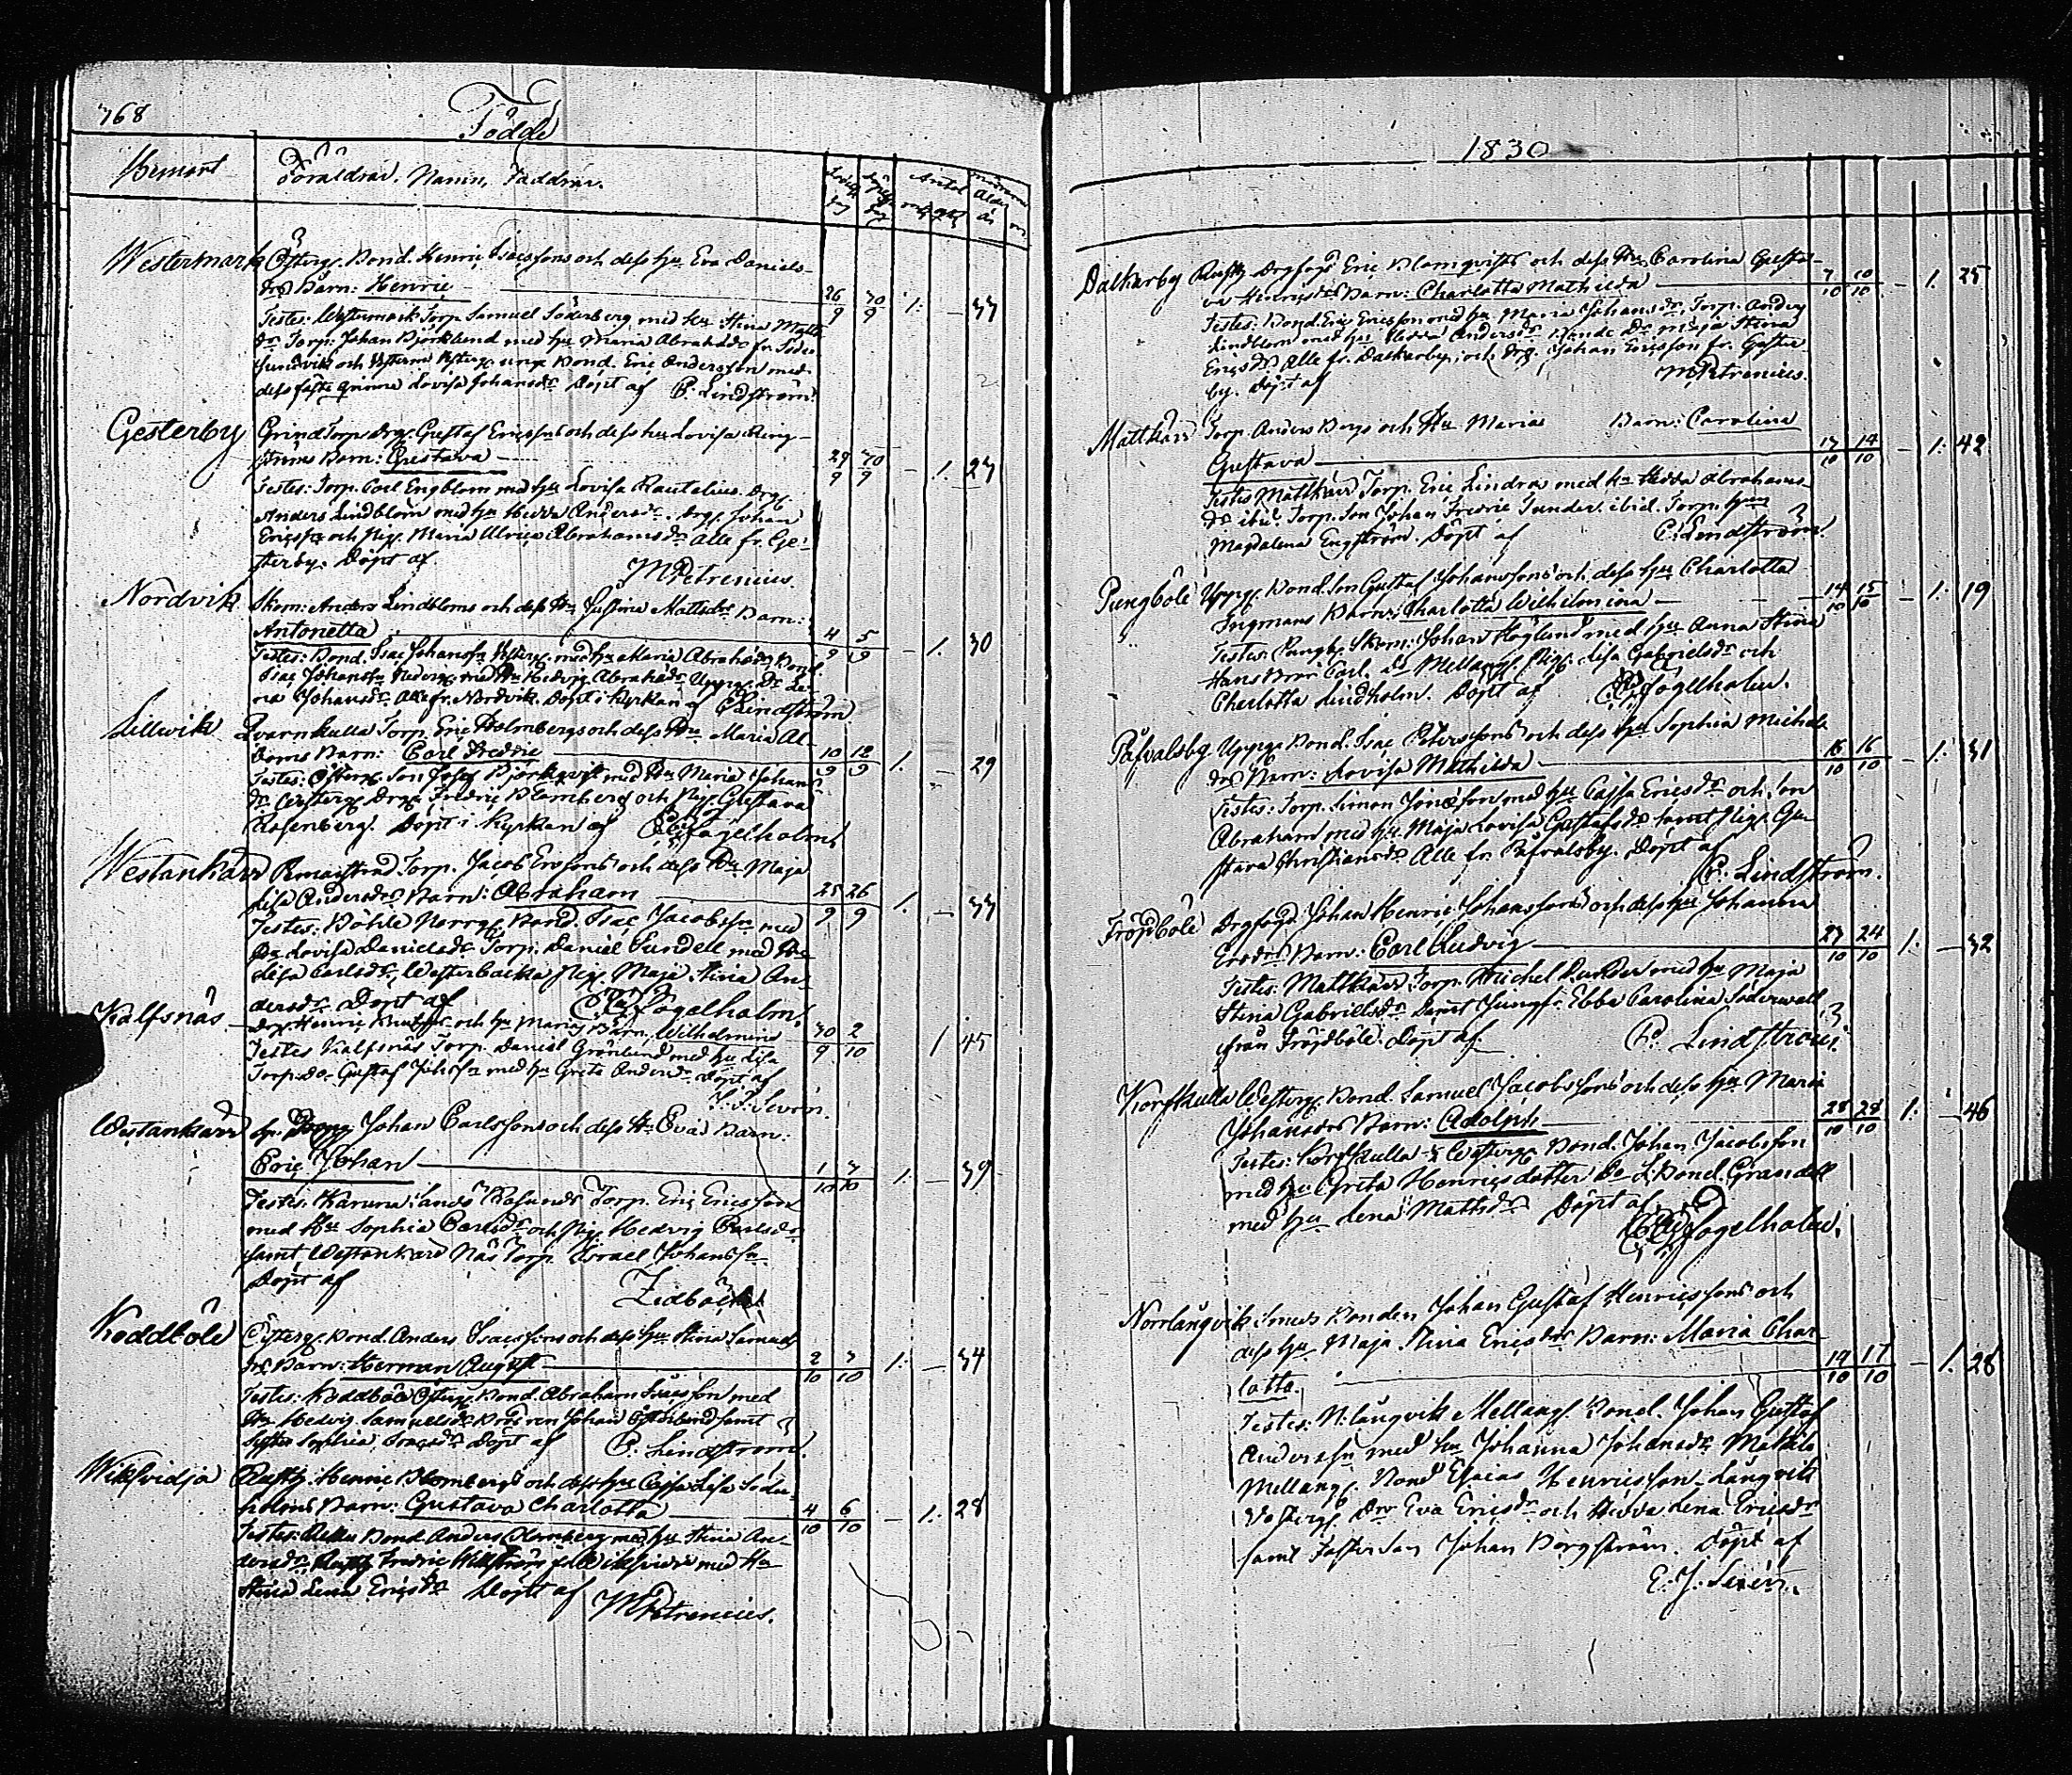 768
Födde
Hemort
Föräldrar. Namn, Faddrar.
Westermark Österg. Bond. Henric Isacssons och dess hu Eva Daniels-
drs Barn: Henric 26/9 30/9 1. — 37
Testes: Westermark Torp. Samuel Söderberg med hu Stina Matts
dr Torp. Johan Björklund med hu Maria Abrahdr fr.
och unge Bond. Eric Andersson med
dess fäste qvinna Lovisa Johansdr Döpt af C. Lindström.
Gesterby Torp. Drg. Gustaf Ericssons och dess hu Lovisa Ring-
Barn: Gustava 29/9 30/9 — 1. 27
Testes: Torp. Carl Engblom med hu Lovisa Rautelius. Drg.
Anders Lindblom med hu Hedda Andersdr. Drg. Johan
Ericss och Pig. Maria Ulrica Abrahamsdr alla fr. Ge-
sterby. Döpt af
M Petrenius.
Nordvik Skom: Anders Lindbloms och dess hu Justina Mattsdrs Barn:
Antonetta 4/9 5/9 — 1. 30
Testes: Bond. Isac Johanss Westerg. med hu Maria Abrahdr Bond.
Isac Johanss Nederg. med hu Hedvig Abrahdr Uppg. Dr Le-
na Johansdr Alla fr. Nordvik. Döpt i kyrkan af C Lindström
Lillwik Qvarnkulla Torp. Eric Holmbergs och dess hu Maria Al-
Barn: Carl Fredric 10/9 12/9 1. — 29
Testes: Österg. Son Josef Björkqvist med hu Maria Johans
dr Westerg. Drg. Fredric Blomberg och Pig. Gustava
Rosenberg. Döpt i Kyrkan af Fogelholm
Westankärr Torp. Jacob Erssons och dess hu Maja
Lisa Andersdrs Barn: Abraham 25/9 26/9 1. — 37
Testes: Böhle Norrg. Bond. Isac Jacobss med
hu Lovisa Danielsdr Torp. Daniel Sundell med hu
Lisa Carlsdr, Westerbacka Pig. Maja Stina An-
dersdr Döpt af Fogelholm.
Kalfsnäs Drg. Henric och hu Maria Barn: Wilhelmina 30/9 2/10 1 45
Testes Kalfsnäs Torp. Daniel Grönlund med hu Lisa
Torp. Do Gustaf Johss med hu Greta Andersdr Döpt af
Sevón.
Westankärr Johan Carlssons och dess hu Evas Barn:
Eric Johan 1/10 3/10 1. — 39
Testes: Karuna Torp. Eric Ericsson
med hu Sophia Carlsdr och Pig. Hedvig Carlsdr
samt Westankärr Näs Torp. Israel Johanss
Döpt af
Lidbäck
Koddböle Österg. Bond. Anders Isacssons och dess hu Stina Samuels
drs Barn: Herman August 2/10 3/10 1. — 34
Testes: Koddböle Österg. Bond. Abraham Isacsson med
hu Hedvig Samuelsdr Brodren Johan Österlund samt
Syster Sophia Isacsdr Döpt af C. Lindström.
Wiksvidja Rustg. Henric Blombergs och dess hu Cajsa Lisa Söder-
holms Barn: Gustava Charlotta 4/10 6/10 — 1. 28
Testes: Bond. Anders med hu Stina An-
dersdr Rustg Fredric med hu
Stina Lena Ericsdr Döpt af M Petrenius.
1830
Dalkarby Rustg Drgfogd Eric Blomqvists och dess hu Carolina Gusta-
va Henricsdrs Barn: Charlotta Mathilda 7/10 10/10 — 1. 25
Testes: Bond. Eric Ericsson med hu Maria Johansdr, Torp. Anders
Lindblom med hu Hedda Andersdr Maja Stina
Ericsdr Alla fr. Dalkarby, och Drg. Johan Ericsson fr. Gester-
by. Döpt af M Petrenius.
Mattkärr Torp. Anders Bergs och hu Marias Barn: Carolina
Gustava 13/10 14/10 — 1. 42
Testes Mattkärr Torp. Eric Lindros med hu Hedda Abrahams-
dr ibid. Torp. Son Johan Fredric Sunder. ibid. Torp. hu
Magdalena Engström. Döpt af C. Lindström.
Pungböle Uppg. Bond. Son Gustaf Johanssons och dess hu Charlotta
Ingmans Barn: Charlotta Wilhelmina 14/10 15/10 — 1. 19
Testes: Pungb. Skom: Johan Höglund med hu Anna Stina
Hans Bror Carl. Do Mellang. Pig. Lisa Gabrielsdr och
Charlotta Lindholm. Döpt af Fogelholm.
Påfvalsby Uppg. Bond. Isac Peterssons och dess hu Sophia Michels
drs Barn: Lovisa Mathilda 15/10 16/10 — 1. 31
Testes: Torp. Simon Jönsson med hu Cajsa Ericsdr och Son
Abraham med hu Maja Lovisa Gustafsdr samt Pig. Gu-
stava Christiansdr Alla fr. Påfvalsby. Döpt af
C. Lindström.
Fröjdböle Drgfogd. Johan Henric Johanssons och dess hu Johanna
Ersdrs Barn: Carl Ludvig 23/10 24/10 1. — 32
Testes: Mattkärr Torp. Michel Sunder med hu Maja
Stina Gabrielsdr samt Jungfr. Ebba Carolina Söderwall
ifrån Fröjdböle. Döpt af. C. Lindström.
Korfkulla Westerg. Bond. Samuel Jacobssons och dess hu Maria
Johansdrs Barn: Adolph 28/10 28/10 1. — 46
Testes: Korfkulla Westerg. Bond. Johan Jacobsson
med hu Greta Henricsdotter Do Bond. Grandell
med hu Lena Mattsdr Döpt af
Fogelholm.
Norrlångvik Smeds Bonden Johan Gustaf Henricssons och
dess hu Maja Stina Ericsdrs Barn: Maria Char-
lotta. 14/10 17/10 — 1. 28
Testes: N. långvik Mellang. Bond. Johan Gustaf
Anderss med hu Johanna Johansdr Mattila
Mellang. Bond Esaias Henricsson Långvik
Österg. Dr Eva Ericsdr och Hedda Lena Ericsdr
samt Johan Bergström. Döpt af
E. J. Sevón.